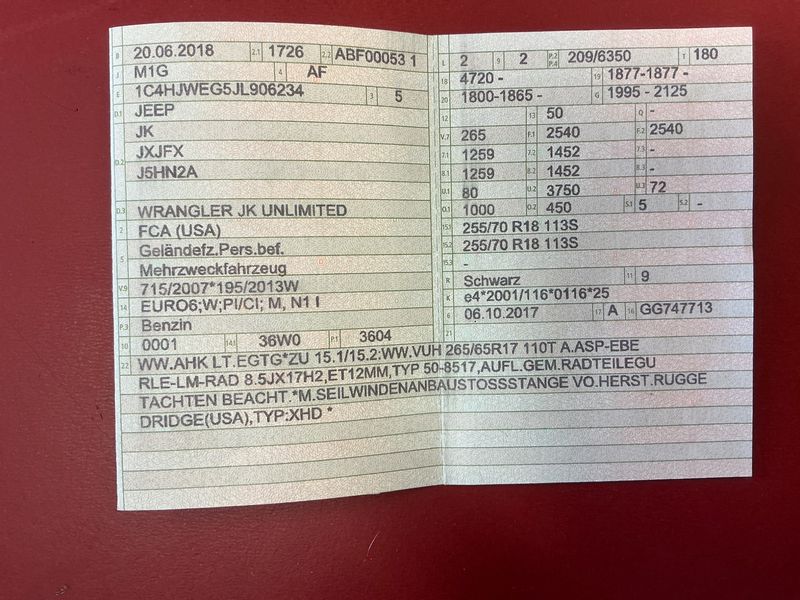 B 20.06.2018 2.1 1726 2.2 ABF00053 1
J M1G 4 AF
E 1C4HJWEG5JL906234 3 5
D.1 JEEP
JK
D.2 JXJFX
J5HN2A
D.3 WRANGLER JK UNLIMITED
2 FCA (USA)
5 Geländefz.Pers.bef.
Mehrzweckfahrzeug
V.9 715/2007*195/2013W
14 EURO6;W;PI/CI; M, N1 I
P.3 Benzin
10 0001 14.1 36W0 P.1 3604
L 2 9 2 P.2 P.4 209/6350 T 180
18 4720 - 19 1877-1877 -
20 1800-1865 - G 1995 - 2125
12 13 50 Q -
V.7 265 F.1 2540 F.2 2540
7.1 1259 7.2 1452 7.3 -
8.1 1259 8.2 1452 8.3 -
U.1 80 U.2 3750 U.3 72
O.1 1000 O.2 450 S.1 5 S.2 -
15.1 255/70 R18 113S
15.2 255/70 R18 113S
15.3 -
R Schwarz 11 9
K e4*2001/116*0116*25
6 06.10.2017 17 A 16 GG747713
21
22 WW.AHK LT.EGTG*ZU 15.1/15.2:WW.VUH 265/65R17 110T A.ASP-EBE
RLE-LM-RAD 8.5JX17H2,ET12MM,TYP 50-8517,AUFL.GEM.RADTEILEGU
TACHTEN BEACHT.*M.SEILWINDENANBAUSTOSSSTANGE VO.HERST.RUGGE
DRIDGE(USA),TYP:XHD *